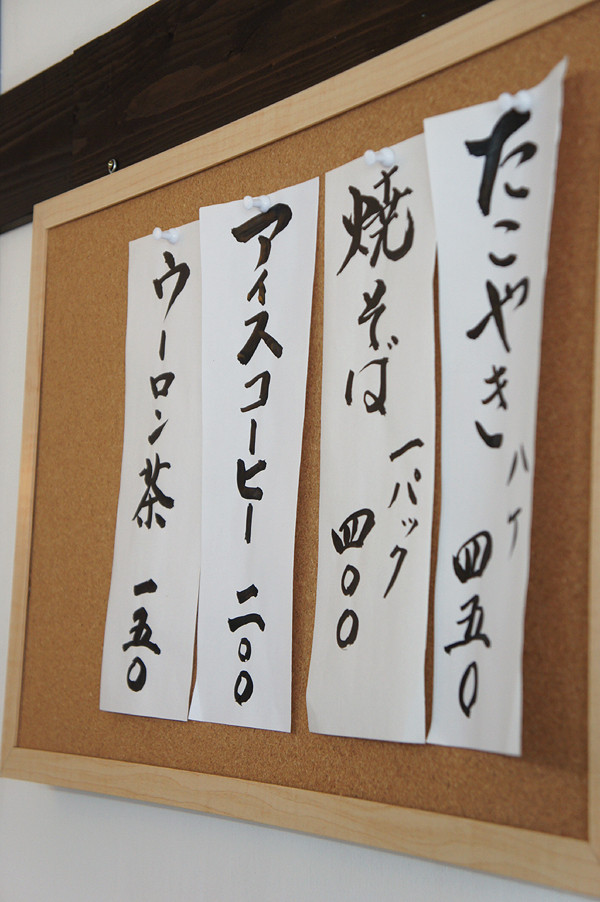 たこやき
八ケ
四五〇
焼そば
一パック
四〇〇
アイスコーヒー
二〇〇
ウーロン茶
一五〇